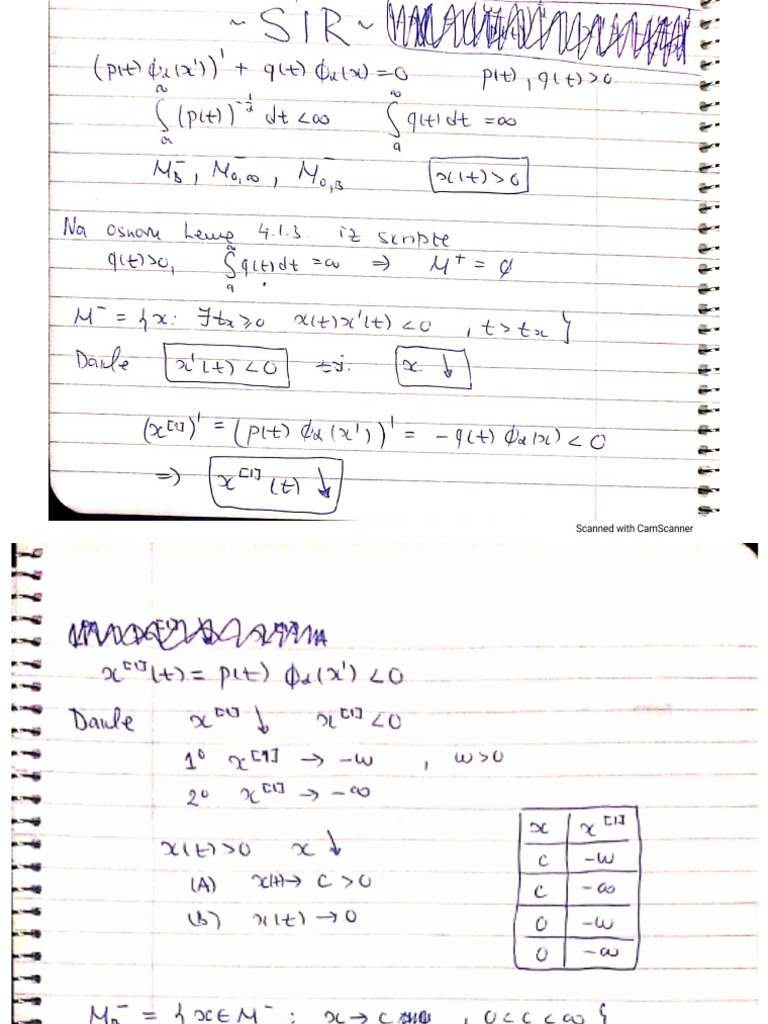 ~ SIR ~
(p(t) ϕα(x'))' + q(t) ϕα(x) = 0    p(t), q(t) > 0
∫_a^∞ (p(t))^{-1/α} dt < ∞    ∫_a^∞ q(t) dt = ∞
M_B^-, M_{0,∞}^-, M_{0,B}^-    x(t) > 0
Na osnovu Leme 4.1.3. iz skripte
q(t) > 0,  ∫_a^∞ q(t) dt = ∞ ⇒ M^+ = ∅
M^- = { x : ∃ t_x ≥ 0  x(t) x'(t) < 0 , t > t_x }
Dakle  x'(t) < 0  tj.  x ↓
(x^{[1]})' = (p(t) ϕα(x'))' = - q(t) ϕα(x) < 0
⇒ x^{[1]}(t) ↓
Scanned with CamScanner
x^{[1]}(t) = p(t) ϕα(x') < 0
Dakle  x^{[1]} ↓  x^{[1]} < 0
1° x^{[1]} → -ω , ω > 0
2° x^{[1]} → -∞
x(t) > 0  x ↓
(A) x(t) → c > 0
(B) x(t) → 0
x | x^{[1]}
c | -ω
c | -∞
0 | -ω
0 | -∞
M_B^- = { x ∈ M^- : x → c , 0 < c < ∞ }